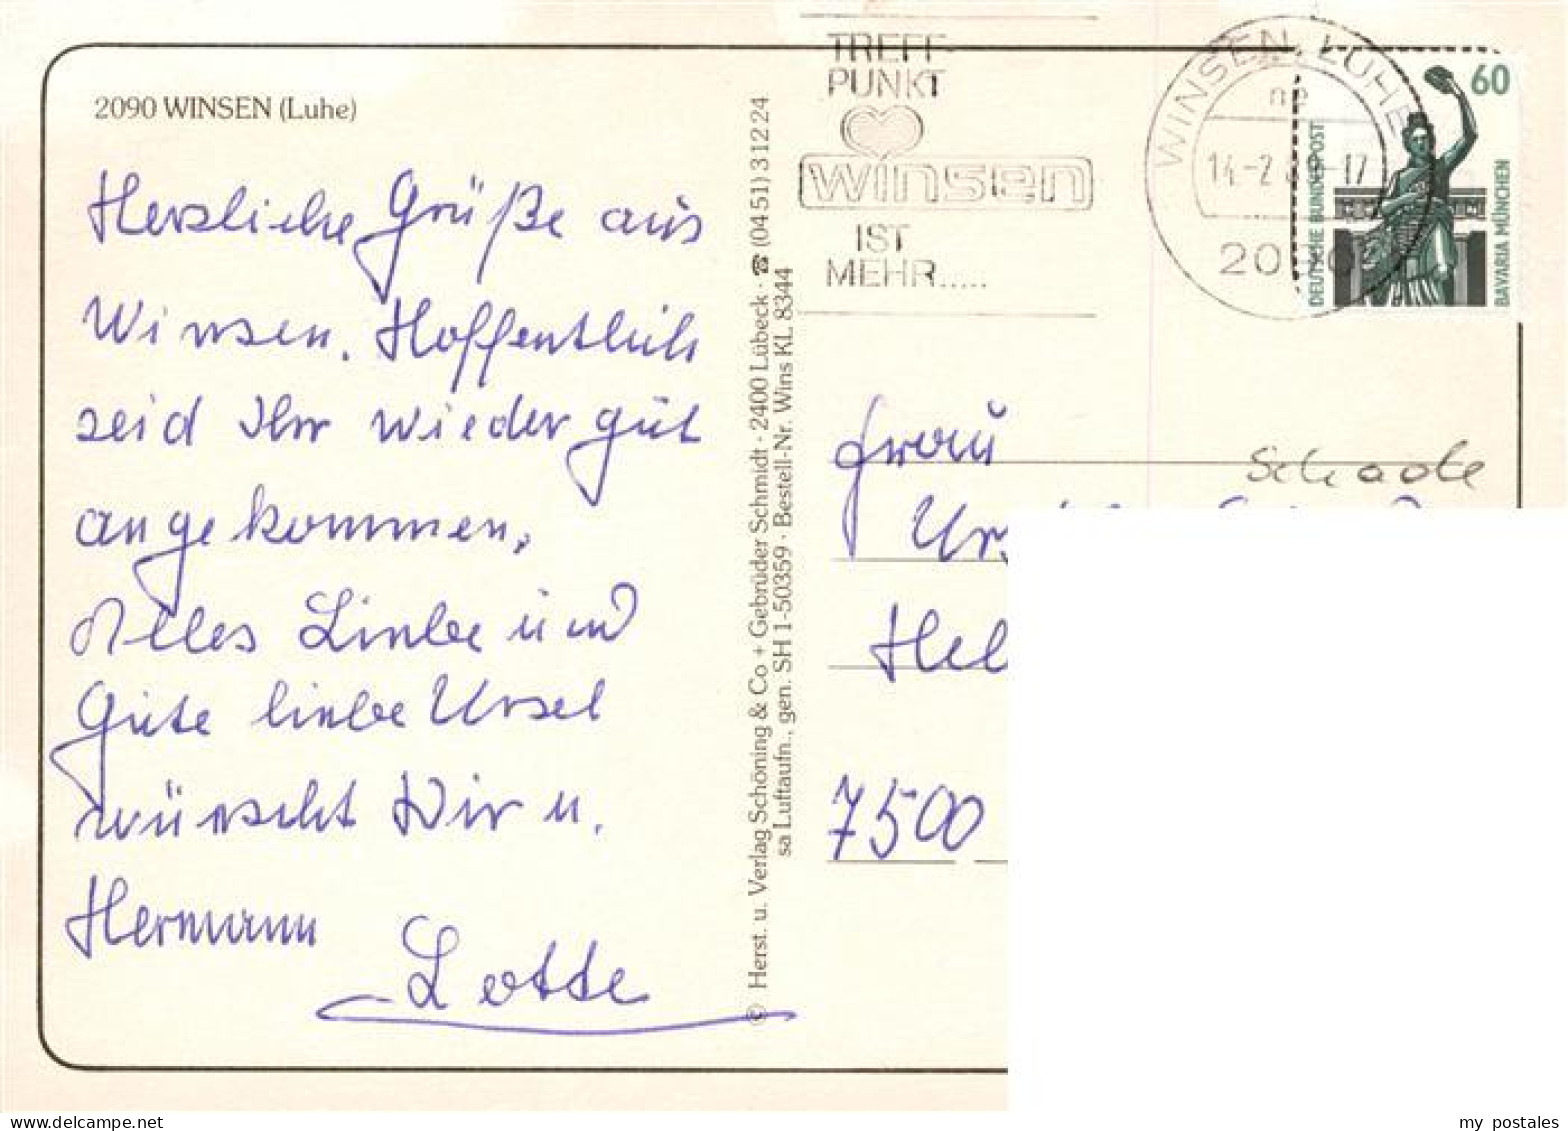 2090 WINSEN (Luhe)
Herzliche Grüße aus
Winsen. Hoffentlich
seid Ihr wieder gut
angekommen,
Alles Liebe und
Gute liebe Ursel
wünscht Wir u.
Hermann
Lotte
© Herst. u. Verlag Schöning & Co + Gebrüder Schmidt · 2400 Lübeck · ☎ (04 51) 3 12 24
sa Luftaufn., gen. SH 1-50359 · Bestell-Nr. Wins KL 8344
TREFF-
PUNKT
winsen
IST
MEHR.....
WINSEN, LUHE
14.-2. -17
60
DEUTSCHE BUNDESPOST
BAVARIA MÜNCHEN
Frau
Schade
7500
my postales